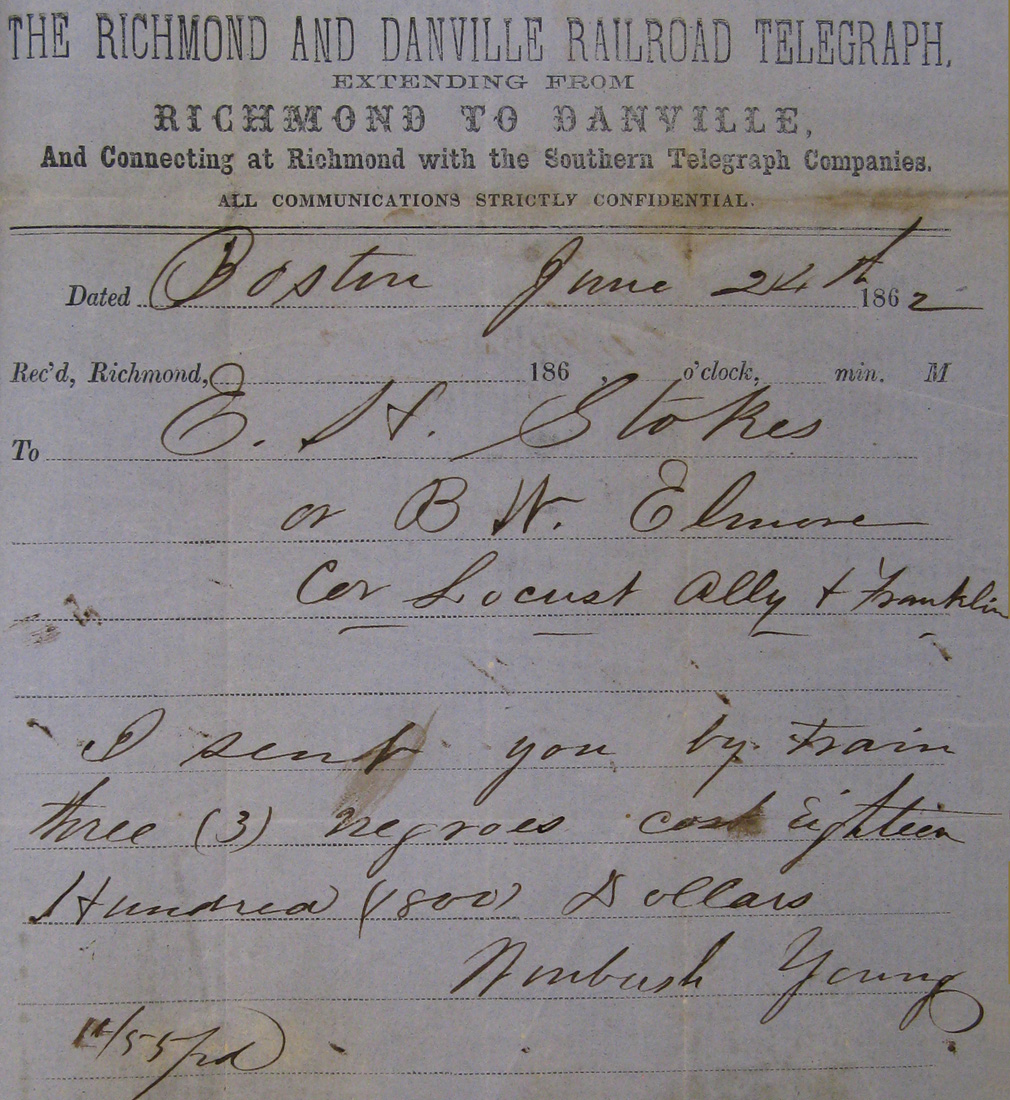 THE RICHMOND AND DANVILLE RAILROAD TELEGRAPH,
EXTENDING FROM
RICHMOND TO DANVILLE,
And Connecting at Richmond with the Southern Telegraph Companies.
ALL COMMUNICATIONS STRICTLY CONFIDENTIAL.
Dated Boston June 24th 1862
Rec'd, Richmond, 186 , o'clock, min. M
To E. H. Stokes
or B W. Elmore
Cor Locust Ally & Franklin
I sent you by train
three (3) negroes cost Eighteen
Hundred (1800) Dollars
Wimbush Young
/55 pd